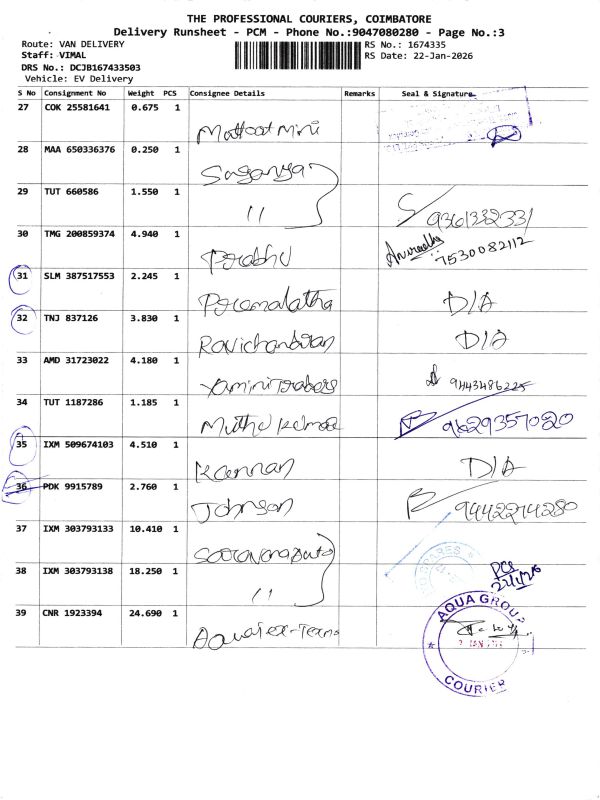 THE PROFESSIONAL COURIERS, COIMBATORE
Delivery Runsheet - PCM - Phone No.:9047080280 - Page No.:3
Route: VAN DELIVERY RS No.: 1674335
Staff: VIMAL RS Date: 22-Jan-2026
DRS No.: DCJB167433503
Vehicle: EV Delivery
S No Consignment No Weight PCS Consignee Details Remarks Seal & Signature
27 COK 25581641 0.675 1 Mattoot Mini
28 MAA 650336376 0.250 1 Suganya
29 TUT 660586 1.550 1 11 9361332331
30 TMG 200859374 4.940 1 Prabhu Anuradha 7530082112
31 SLM 387517553 2.245 1 Poremalatha D/A
32 TNJ 837126 3.830 1 Ravichandran D/A
33 AMD 31723022 4.180 1 Yamini 9443486225
34 TUT 1187286 1.185 1 Muthu Kumar 9629357020
35 IXM 509674103 4.510 1 Kannan D/A
36 PDK 9915789 2.760 1 Johnson 9442274280
37 IXM 303793133 10.410 1 Saravana Auto
38 IXM 303793138 18.250 1 11 PCS 22/1/26
39 CNR 1923394 24.690 1
AQUA GROUP
COURIER